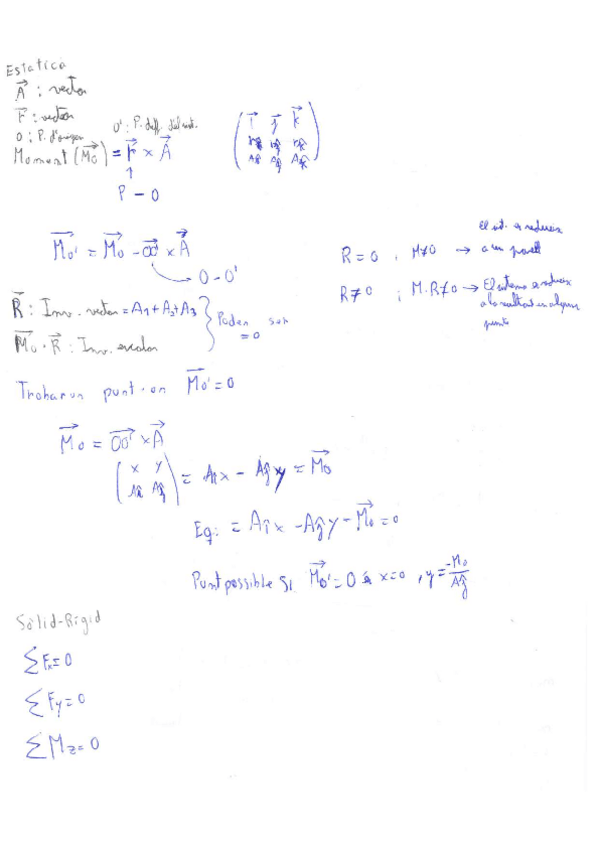 Estatica
A⃗ : vector
r⃗ : vector
O : P. d'origen O' : P. diff. del ist.
Moment (M⃗o) = r⃗ × A⃗
↑
P - O
( i⃗ j⃗ k⃗
rî rĵ rk̂
Aî Aĵ Ak̂ )
M⃗o' = M⃗o - OO'⃗ × A⃗
→ O - O'
R = 0 , M≠0 → El sist. es redueix
a un parell
R≠0 ; M·R≠0 → El sistema es redueix
a la resultant en algun
punto
R⃗ : Inv. vector = A1 + A2 + A3
M⃗o · R⃗ : Inv. escalar
} Poden ser
= 0
Trobar un punt on M⃗o' = 0
M⃗o = OO'⃗ × A⃗
( x y
Aî Aĵ ) = Aîx - Aĵy = M⃗o
Eq: = Aîx - Aĵy - M⃗o = 0
Punt possible si M⃗o' = 0 x=0 , y = -Mo/Aĵ
Sòlid-Rígid
∑Fx = 0
∑Fy = 0
∑Mz = 0